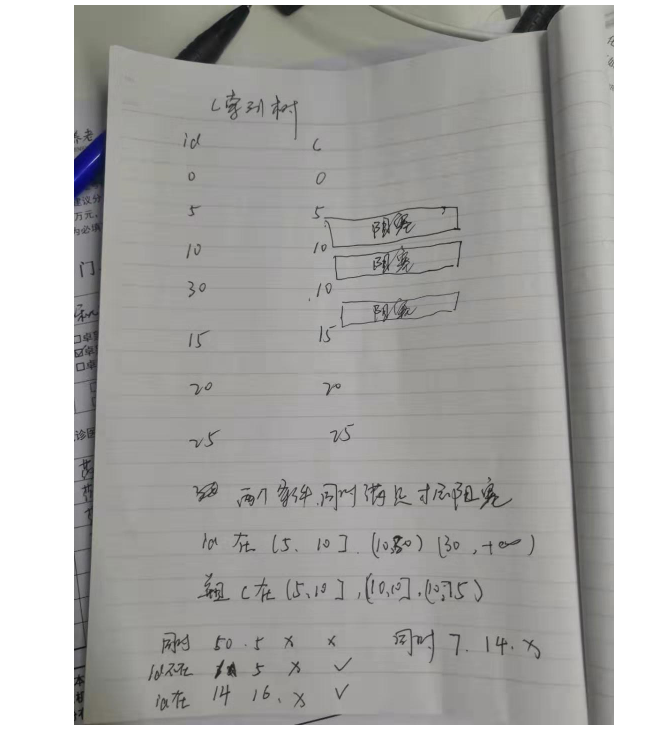 C索引树
id c
0 0
5 5
阻塞
10 10
阻塞
30 10
阻塞
15 15
20 20
25 25
两个条件同时满足才后阻塞
id 在 (5、10]. (10,30) (30,+∞)
c在 (5、10],(10,10].(10,15)
同时 50.5 x x 同时 7.14.x
id不在 5 x ✓
id在 14 16.x ✓